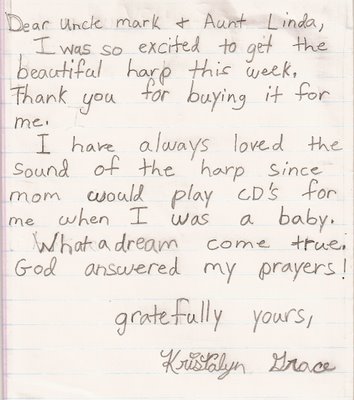 Dear Uncle mark + Aunt Linda,
I was so excited to get the
beautiful harp this week.
Thank you for buying it for
me.
I have always loved the
sound of the harp since
mom would play CD's for
me when I was a baby.
What a dream come true.
God answered my prayers!
gratefully yours,
Kristalyn Grace